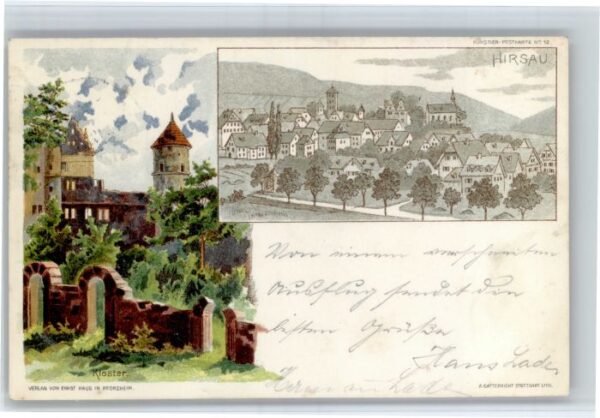 KÜNSTLER-POSTKARTE No 12.
HIRSAU
Von einem verschneiten
Ausflug sendet den
besten Grüße
Hans Lade
Hermann Lade
Kloster.
VERLAG VON ERNST HAUG IN PFORZHEIM.
A. GATTERNICHT STUTTGART LITH.